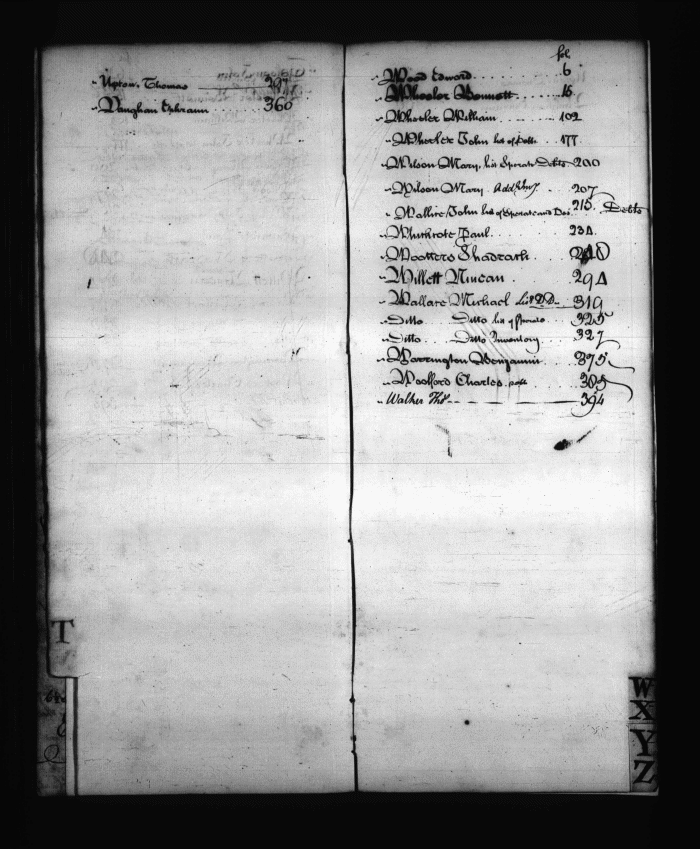 Upton, Thomas 297
Vaughan Ephraim 360
T
fol
Wood Edward 6
Wheeler Bennett 16
Wheeler William 102
Wheeler John list of Debts 177
Wilson Mary, list Sperate Debts 200
Wilson Mary Addl Invy. 207
Wallice John list of Sperate and Des. 215 Debts
Whithrote Paul 234
Wootters Shadrach 240
Willett Ninean 294
Wallace Michael List DD 319
Ditto Ditto list of Sperate 325
Ditto Ditto Inventory 327
Warrington Benjamin 375
Woolford Charles 385
Walker Thos. 394
W
X
Y
Z